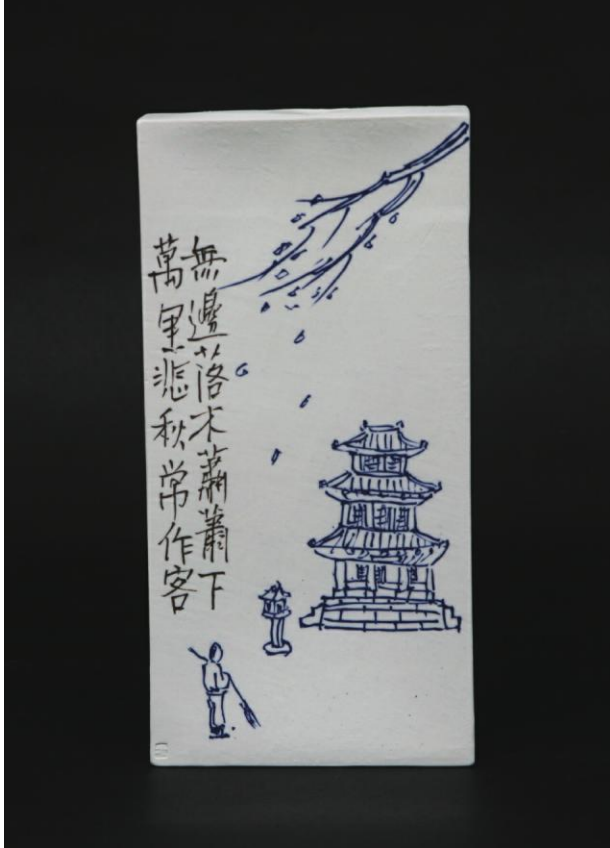 無邊落木蕭蕭下
萬里悲秋常作客